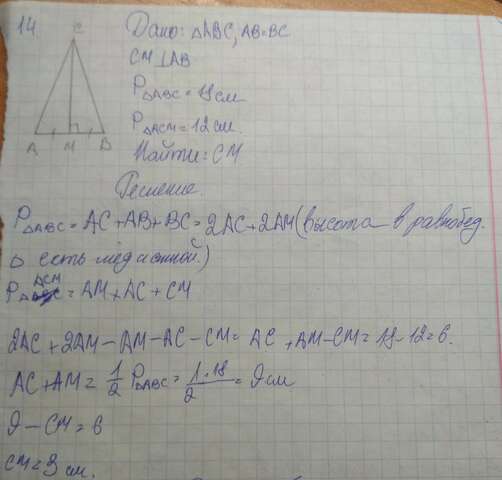 14.
C
A M B
Дано: △ABC, AB=BC
CM⊥AB
P△ABC = 18 см
P△ACM = 12 см.
Найти: CM
Решение.
P△ABC = AC + AB + BC = 2AC + 2AM (высота в равнобед.
△ есть медианной.)
P△ACM = AM + AC + CM
2AC + 2AM - AM - AC - CM = AC + AM - CM = 18 - 12 = 6.
AC + AM = 1/2 P△ABC = 1·18/2 = 9 см
9 - CM = 6
CM = 3 см.